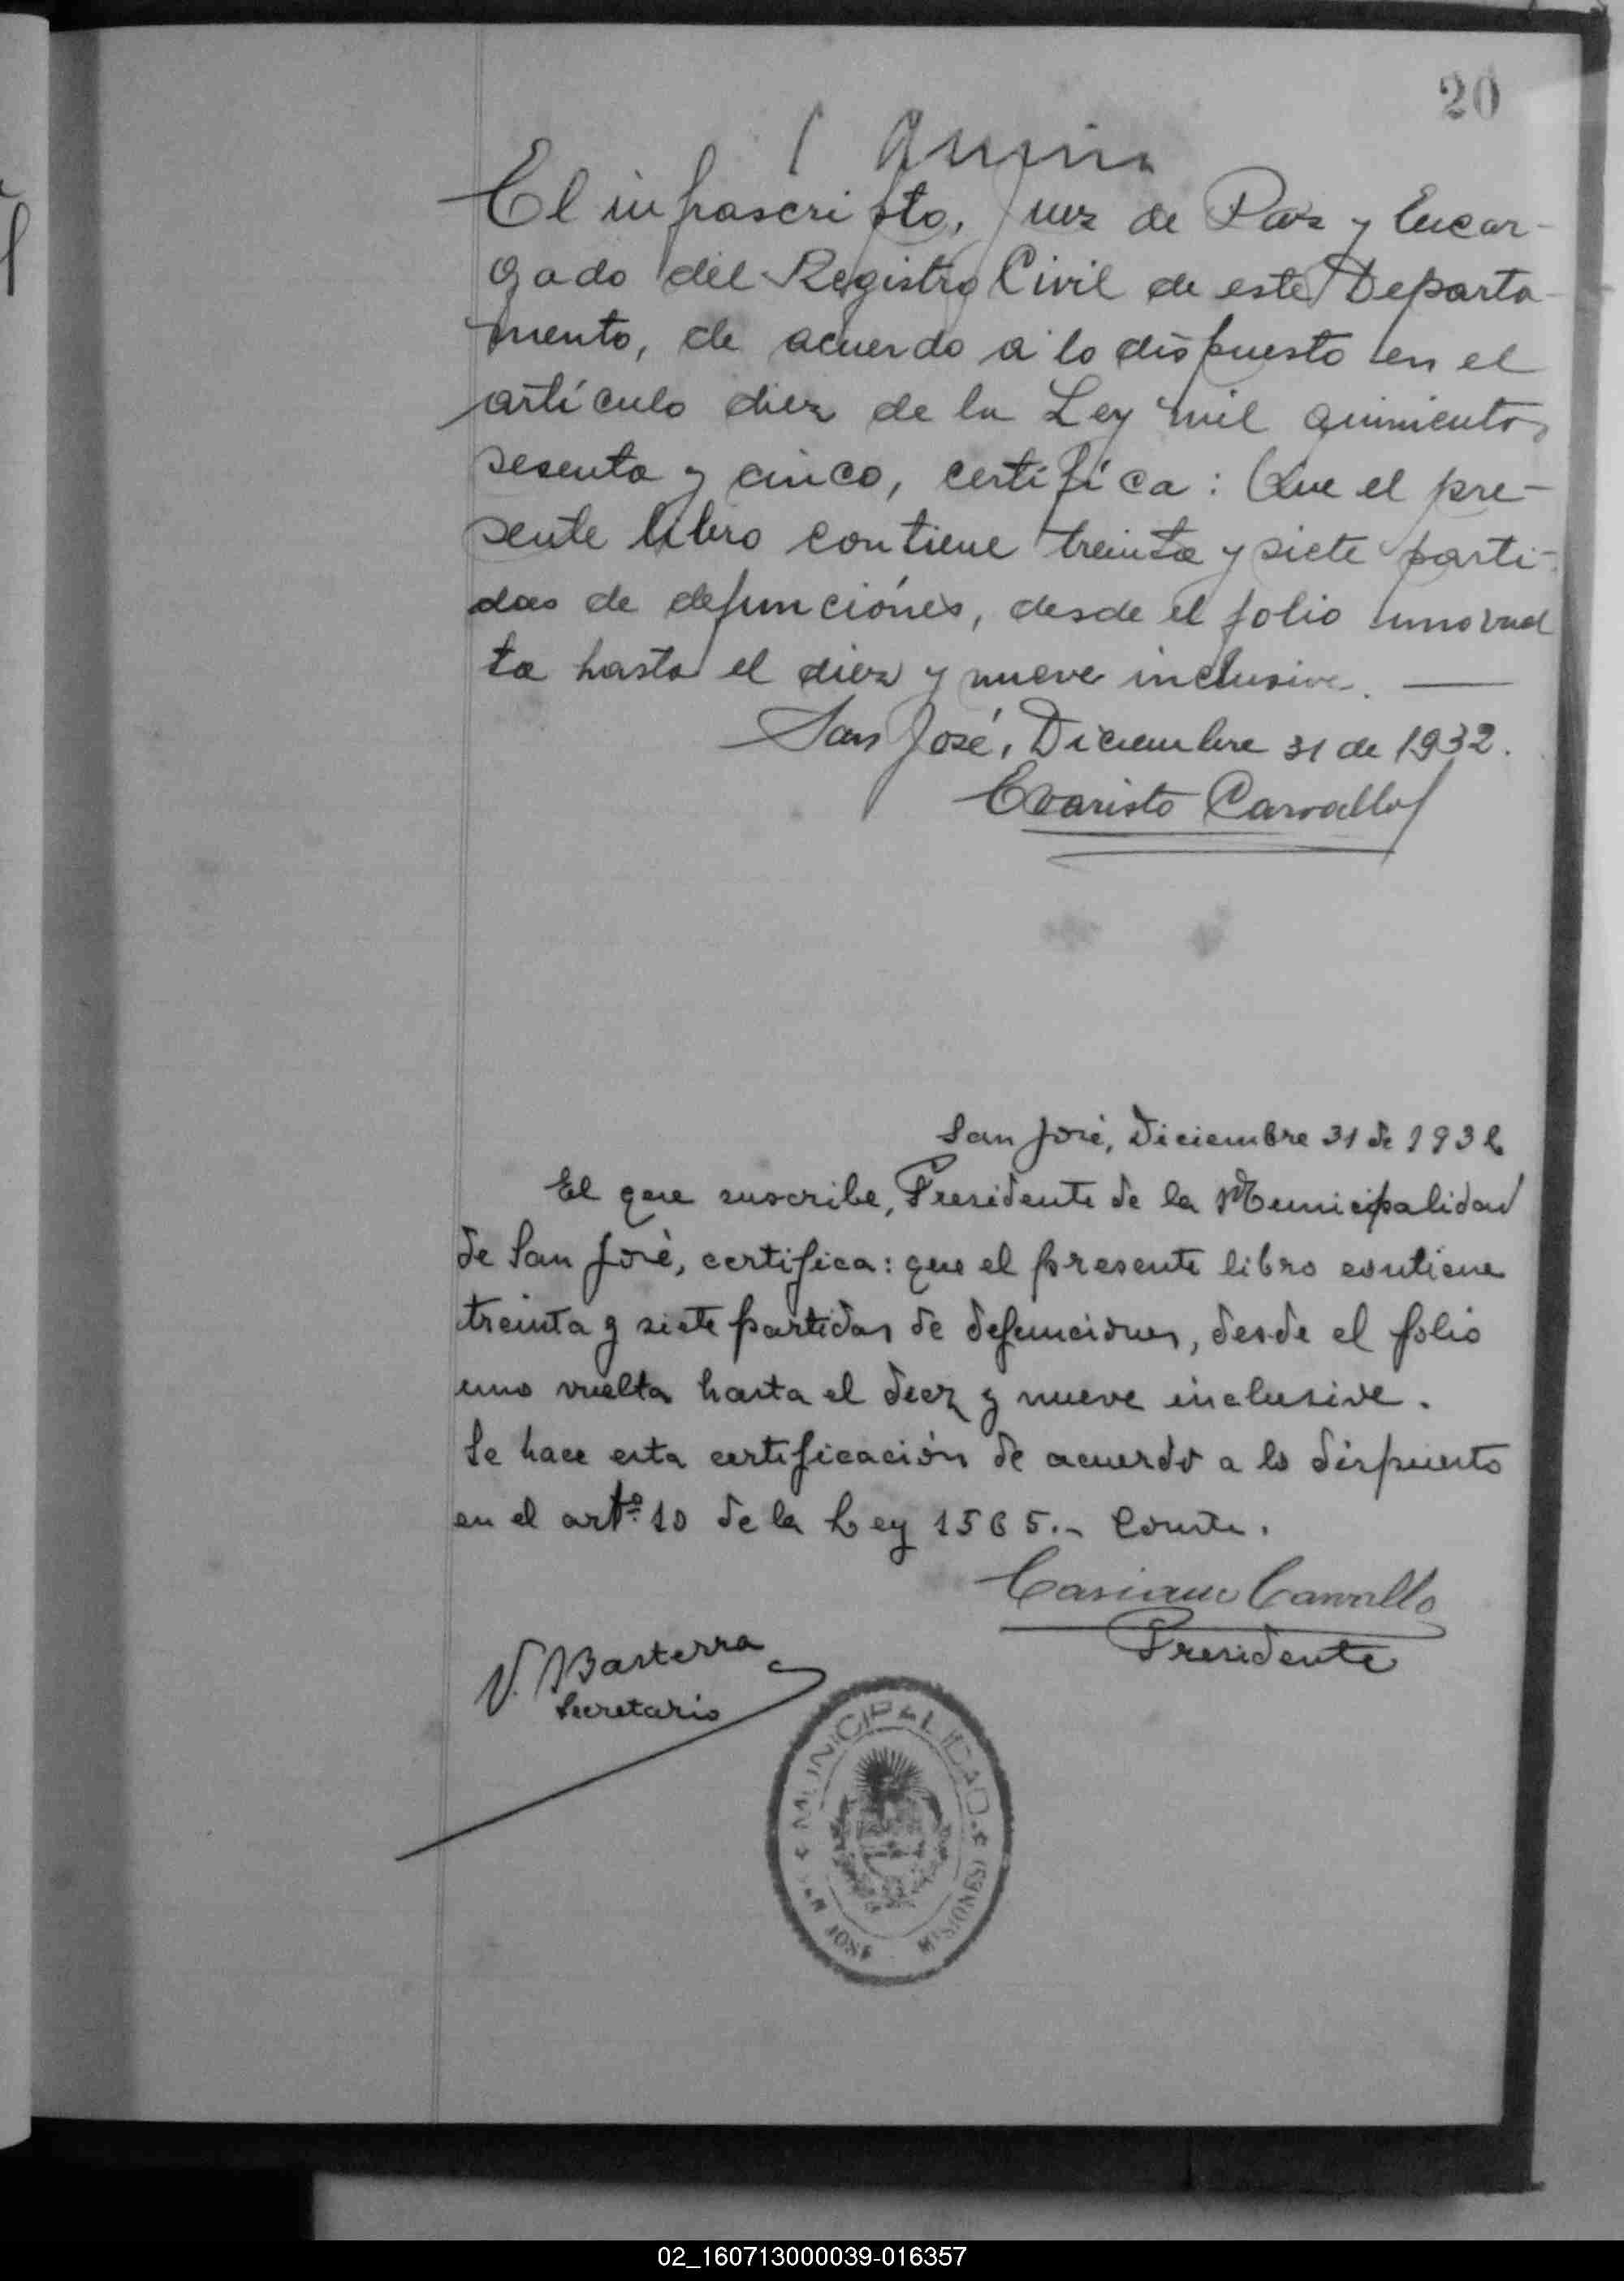 20
El infrascripto, Juez de Paz y Encar-
gado del Registro Civil de este Departa-
mento, de acuerdo a lo dispuesto en el
artículo diez de la Ley mil quinientos
sesenta y cinco, certifica: Que el pre-
sente libro contiene treinta y siete parti-
das de defunciónes, desde el folio uno vuel
ta hasta el diez y nueve inclusive.
San José, Diciembre 31 de 1932.
Evaristo Carvallo
San José, Diciembre 31 de 1932
El que suscribe, Presidente de la Municipalidad
de San José, certifica: que el presente libro contiene
treinta y siete partidas de defunciones, desde el folio
uno vuelta hasta el diez y nueve inclusive.
Se hace esta certificación de acuerdo a lo dispuesto
en el artº 10 de la Ley 1565.- Conste.
Casiano Carvallo
Presidente
V. Basterra
Secretario
MUNICIPALIDAD
SAN JOSÉ
MISIONES
02_160713000039-016357